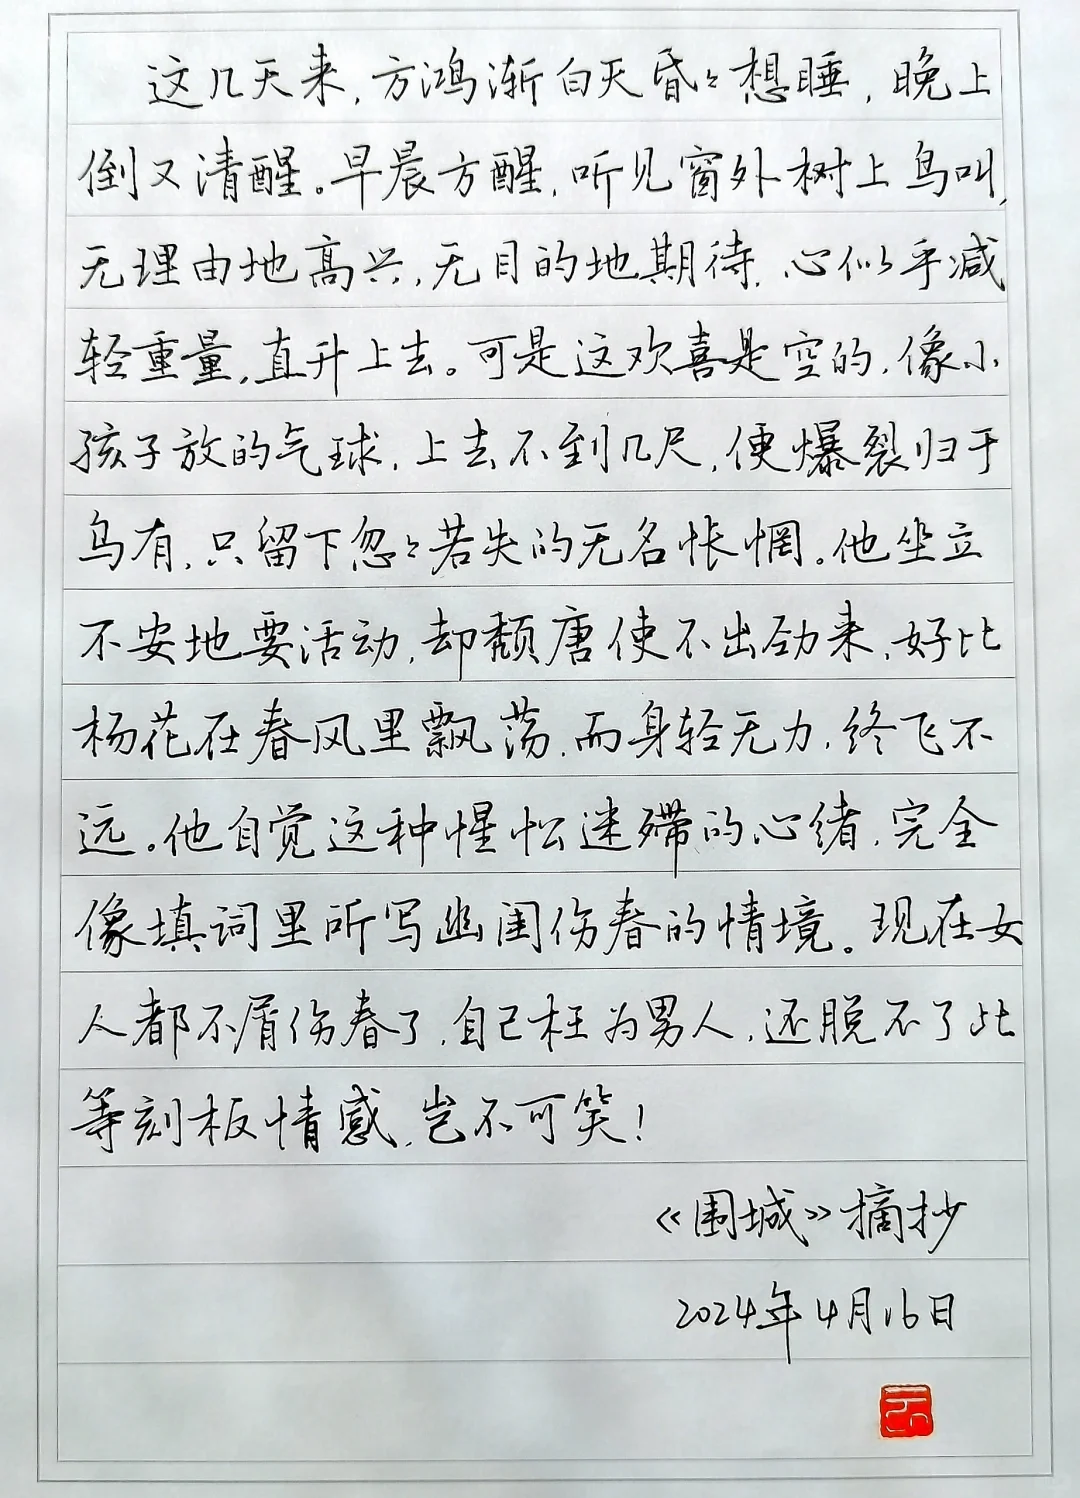 这几天来，方鸿渐白天昏々想睡，晚上
倒又清醒。早晨方醒，听见窗外树上鸟叫，
无理由地高兴，无目的地期待，心似乎减
轻重量，直升上去。可是这欢喜是空的，像小
孩子放的气球，上去不到几尺，便爆裂归于
乌有，只留下忽々若失的无名怅惘。他坐立
不安地要活动，却颓唐使不出劲来，好比
杨花在春风里飘荡，而身轻无力，终飞不
远。他自觉这种惺忪迷殢的心绪，完全
像填词里所写幽闺伤春的情境。现在女
人都不屑伤春了，自己枉为男人，还脱不了此
等刻板情感，岂不可笑！
《围城》摘抄
2024年4月16日